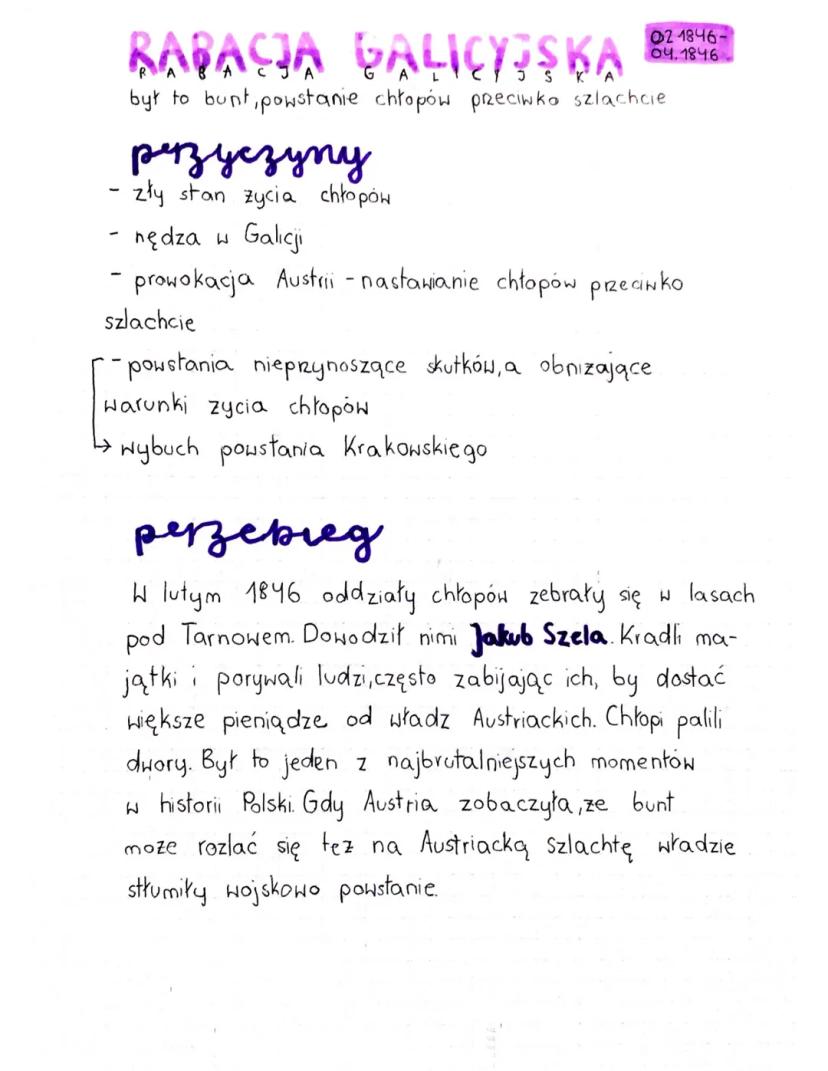 RABACJA GALICYJSKA
02.1846-
04.1846
RABACJA GALICYJSKA
był to bunt, powstanie chłopów przeciwko szlachcie
przyczyny
- zły stan życia chłopów
- nędza w Galicji
- prowokacja Austrii - nastawianie chłopów przeciwko
szlachcie
- powstania nieprzynoszące skutków, a obniżające
warunki zycia chłopów
→ wybuch powstania Krakowskiego
przebieg
W lutym 1846 oddziały chłopów zebrały się w lasach
pod Tarnowem. Dowodził nimi Jakub Szela. Kradli ma-
jątki i porywali ludzi, często zabijając ich, by dostać
większe pieniądze od władz Austriackich. Chłopi palili
dwory. Był to jeden z najbrutalniejszych momentów
w historii Polski. Gdy Austria zobaczyła, ze bunt
może rozlać się tez na Austriacką szlachtę władzie
stłumiły wojskowo powstanie.